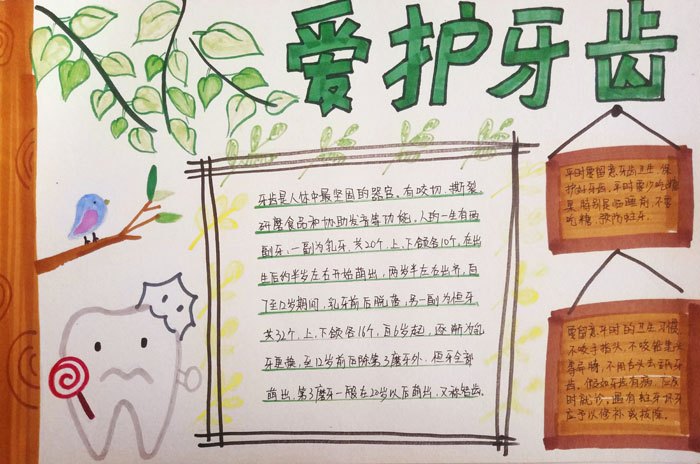 爱护牙齿
牙齿是人体中最坚固的器官。有咬切、撕裂
研磨食品和协助发音等功能，人的一生有两
副牙，一副为乳牙，共20个，上、下颌各10个，在出
生后约半岁左右开始萌出，两岁半左右出齐，后
了至12岁期间，乳牙前后脱落，另一副为恒牙
共32个，上、下颌各16个，自6岁起，逐渐为乳
牙更换，至12岁前后除第3磨牙外，恒牙全部
萌出，第3磨牙一般在20岁以后萌出，又称智齿。
平时要留意牙齿卫生，保
护好牙齿，平时要少吃糖
果，特别是临睡前，不要
吃糖，预防蛀牙。
要留意平时的卫生习惯
不咬手指头，不咬铅笔头
等异物，不用舌头去舐牙
齿。假如牙齿有病，应及
时就诊，蛀牙坏牙
应予以修补或拔除。